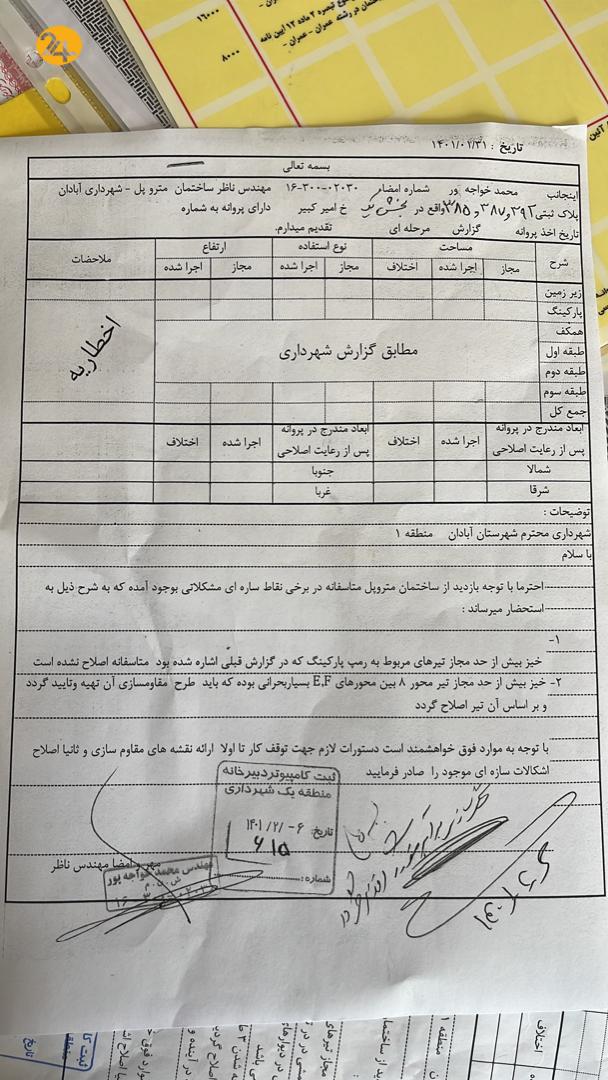 24
۱۶۰۰۰
۸۰۰۰
تبصره ۲ ماده ۱۲ آیین نامه
در رشته عمران - عمران -
تاریخ : ۱۴۰۱/۰۲/۳۱
بسمه تعالی
اینجانب محمد خواجه ور شماره امضاء ۰۲۰۳۰-۳۰۰-۱۶ مهندس ناظر ساختمان مترو پل - شهرداری آبادان
پلاک ثبتی ۳۹۲ و ۳۸۷ و ۳۸۵ واقع در بخش یک خ امیر کبیر دارای پروانه به شماره
تاریخ اخذ پروانه گزارش مرحله ای تقدیم میدارم.
شرح مساحت نوع استفاده ارتفاع ملاحضات
مجاز اجرا شده اختلاف مجاز اجرا شده مجاز اجرا شده
زیر زمین
پارکینگ
همکف
طبقه اول
طبقه دوم
طبقه سوم
جمع کل
مطابق گزارش شهرداری
اخطاریه
ابعاد مندرج در پروانه پس از رعایت اصلاحی اجرا شده اختلاف ابعاد مندرج در پروانه پس از رعایت اصلاحی اجرا شده اختلاف
شمالا جنوبا
شرقا غربا
توضیحات :
شهرداری محترم شهرستان آبادان منطقه ۱
با سلام
احترما با توجه بازدید از ساختمان متروپل متاسفانه در برخی نقاط سازه ای مشکلاتی بوجود آمده که به شرح ذیل به
استحضار میرساند :
۱-
خیز بیش از حد مجاز تیرهای مربوط به رمپ پارکینگ که در گزارش قبلی اشاره شده بود متاسفانه اصلاح نشده است
۲- خیز بیش از حد مجاز تیر محور ۸ بین محورهای E,F بسیاربحرانی بوده که باید طرح مقاومسازی آن تهیه وتایید گردد
و بر اساس آن تیر اصلاح گردد
با توجه به موارد فوق خواهشمند است دستورات لازم جهت توقف کار تا اولا ارائه نقشه های مقاوم سازی و ثانیا اصلاح
اشکالات سازه ای موجود را صادر فرمایید
ثبت کامپیوتر دبیرخانه
منطقه یک شهرداری
تاریخ ۱۴۰۱/۲/-۶
۶۱۵
شماره :
مهر و امضا مهندس ناظر
مهندس محمد خواجه پور
اختلاف
منطقه ۱
ثبت کا
تاریخ